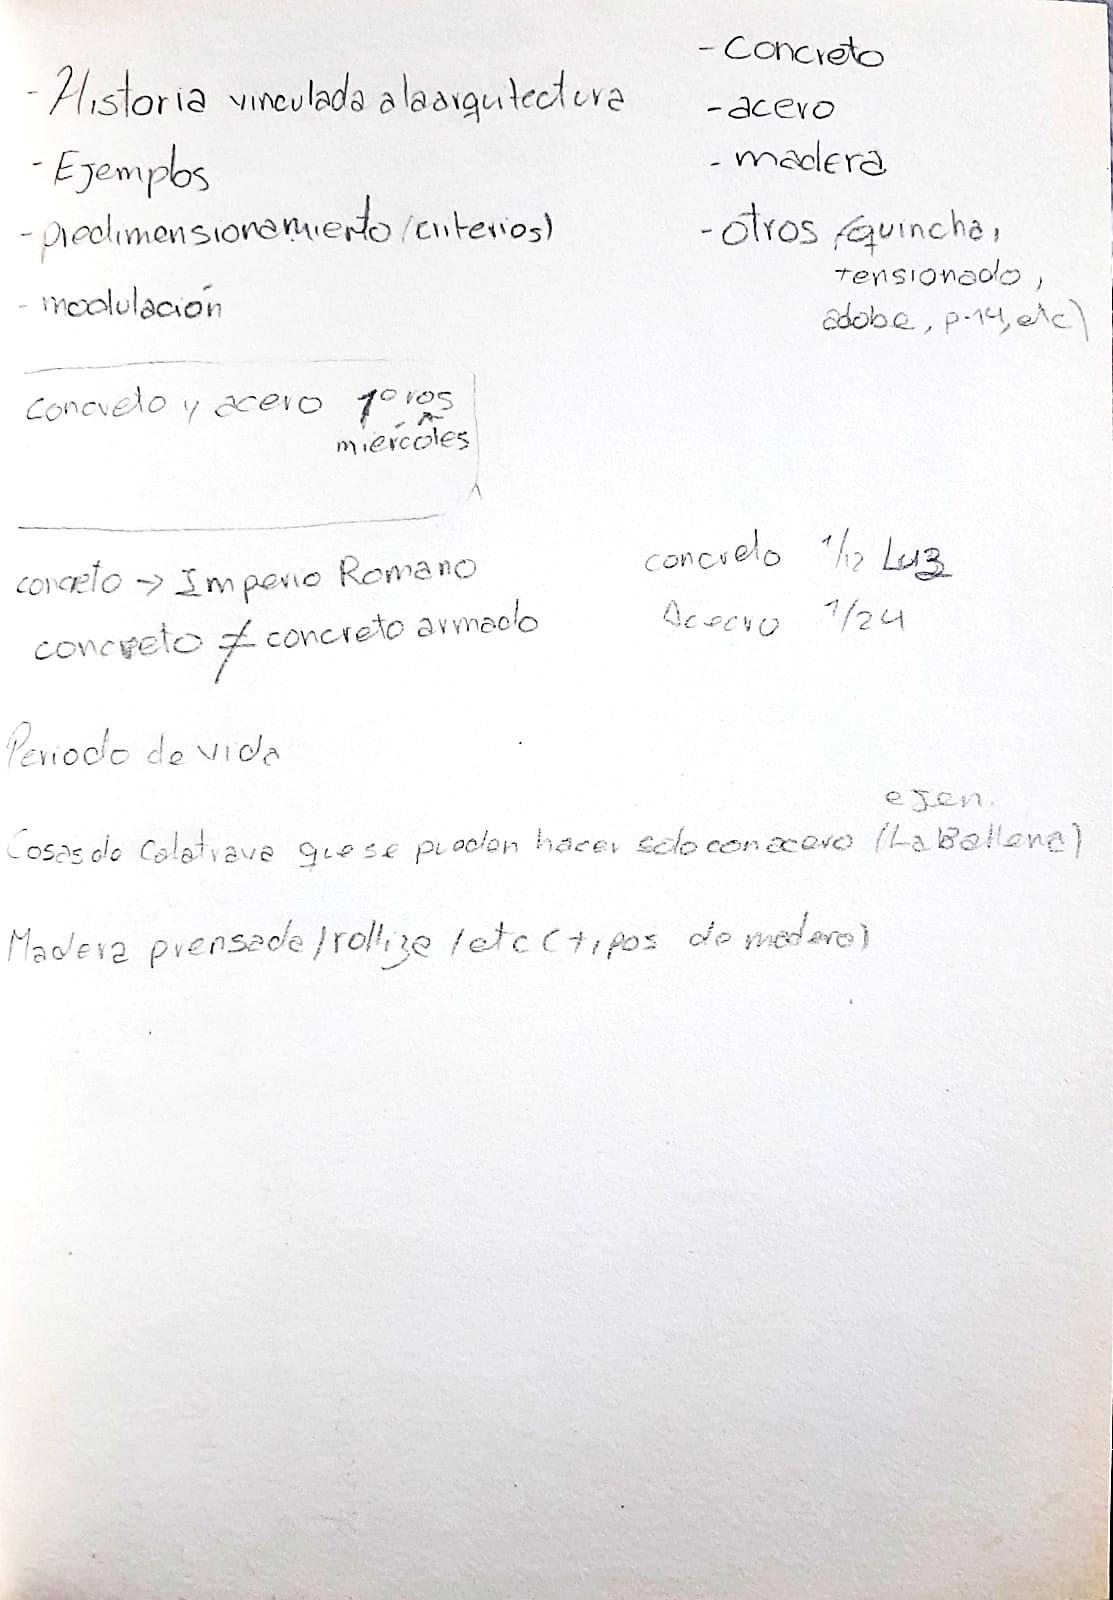 - Historia vinculada a la arquitectura
- Ejemplos
- predimensionamiento (criterios)
- modulación
- Concreto
- acero
- madera
- otros (quincha,
tensionado,
adobe, p-14, etc)
concreto y acero 1º ros
miércoles
concreto → Imperio Romano
concreto ≠ concreto armado
concreto 1/12 Luz
Acecro 1/24
Periodo de vida
ejem.
Cosas de Calatrava que se pueden hacer solo con acero (La Ballena)
Madera prensada / rolliza / etc (tipos de madera)